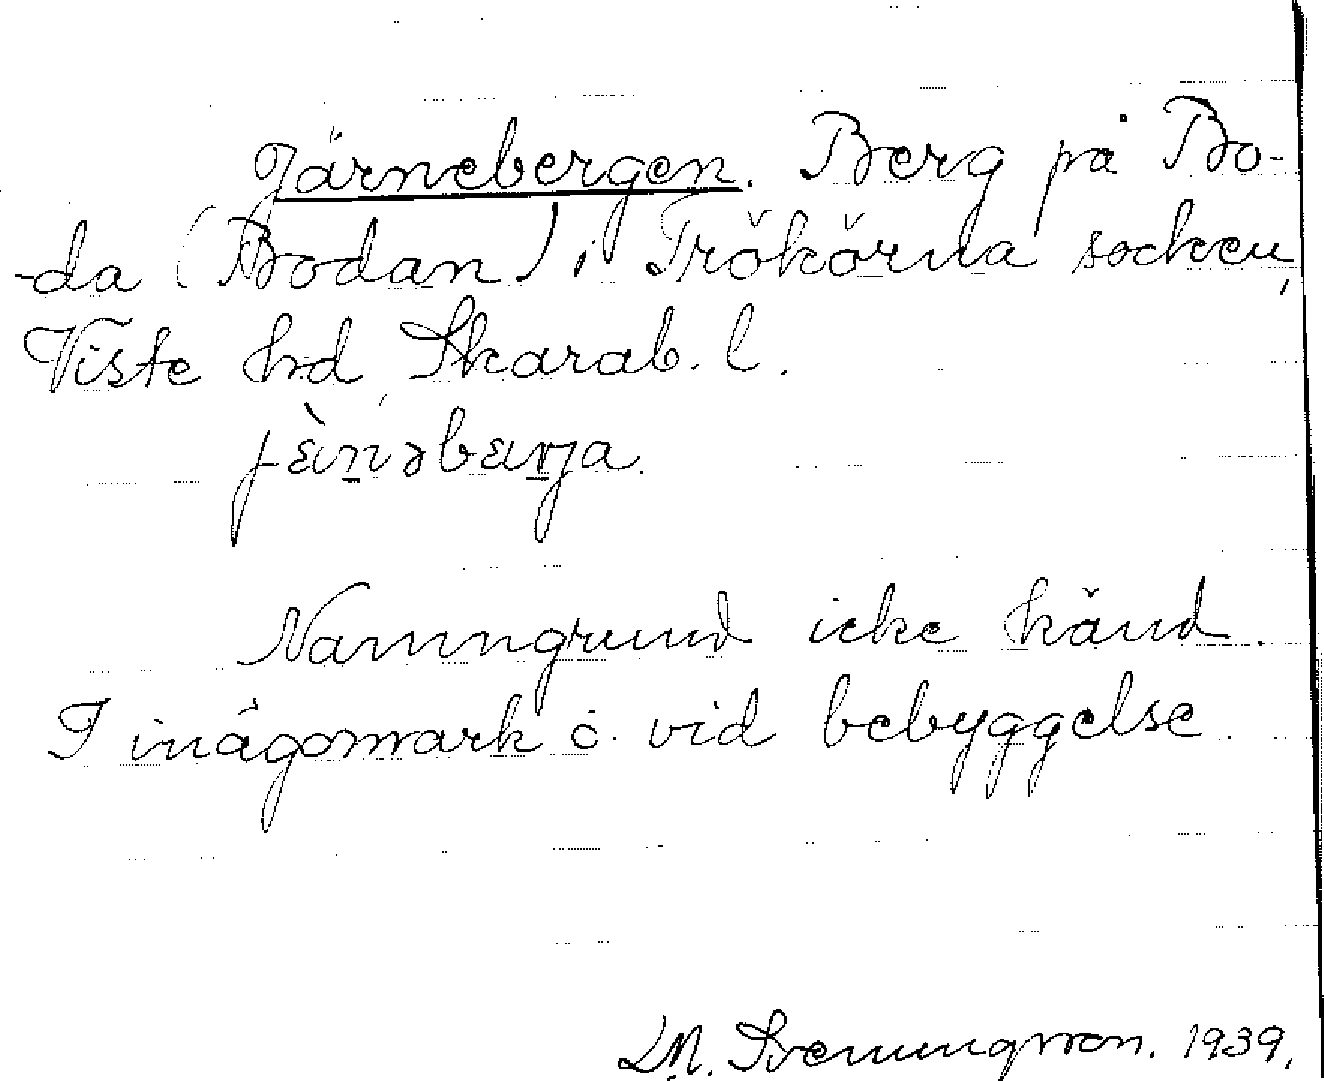 Järnebergen. Berg på Bo-
-da (Bodan) i Trökörna socken,
Viste hd Skarab. l.
Namngrund icke känd.
I inägomark o. vid bebyggelse.
Svenungsson. 1939.